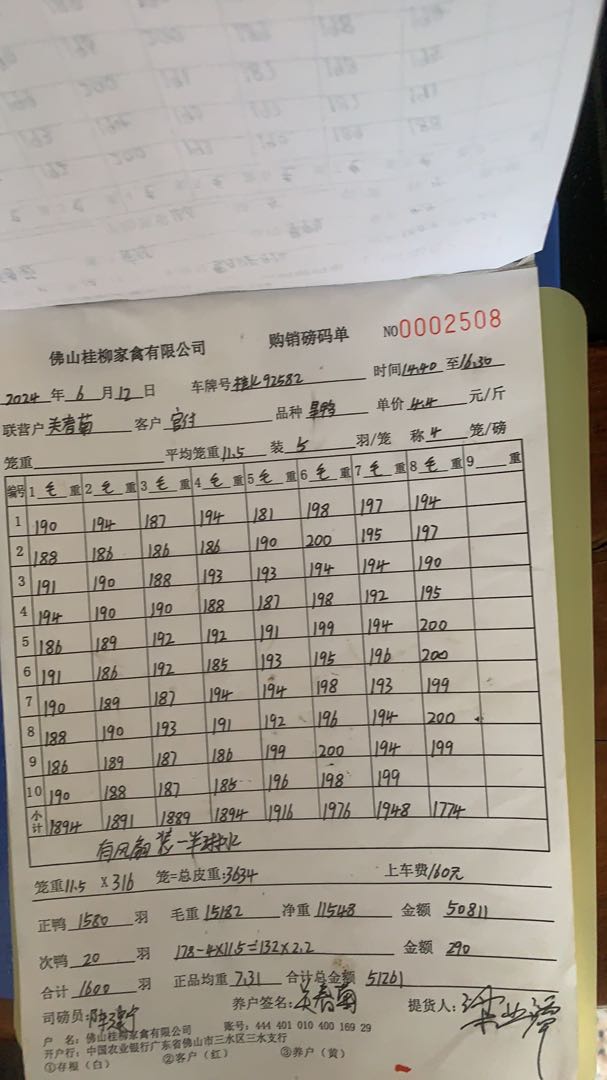 佛山桂柳家食有限公司 购销磅码单 NO0002508
2024 年 6 月 12 日 车牌号 92582 时间14.40 至16.30
联营户 关春菊 客户 官付 品种 单价 4.4 元/斤
笼重 平均笼重 11.5 装 5 羽/笼 称 4 笼/磅
编号 1 毛 重 2 毛 重 3 毛 重 4 毛 重 5 毛 重 6 毛 重 7 毛 重 8 毛 重 9 重
1 190 194 187 194 181 198 197 194
2 188 186 186 186 190 200 195 197
3 191 190 188 193 193 194 194 190
4 194 190 190 188 187 198 192 195
5 186 189 192 192 191 199 194 200
6 191 186 192 185 193 195 196 200
7 190 189 187 194 194 198 193 199
8 188 190 193 191 192 196 194 200
9 186 189 187 186 199 200 194 199
10 190 188 187 185 196 198 199
小计 1894 1891 1889 1894 1916 1976 1948 1774
有风 装一半
笼重11.5 x 316 笼=总皮重:3634 上车费160元
正鸭 1580 羽 毛重 15182 净重 11548 金额 50811
次鸭 20 羽 178-4x11.5=132x2.2 金额 290
合计 1600 羽 正品均重 7.31 合计总金额 51261
司磅员: 养户签名: 关春菊 提货人:
户 名: 佛山桂柳家禽有限公司 账号: 444 401 010 400 169 29
开户行: 中国农业银行广东省佛山市三水区三水支行
①存根(白) ②客户(红) ③养户(黄)